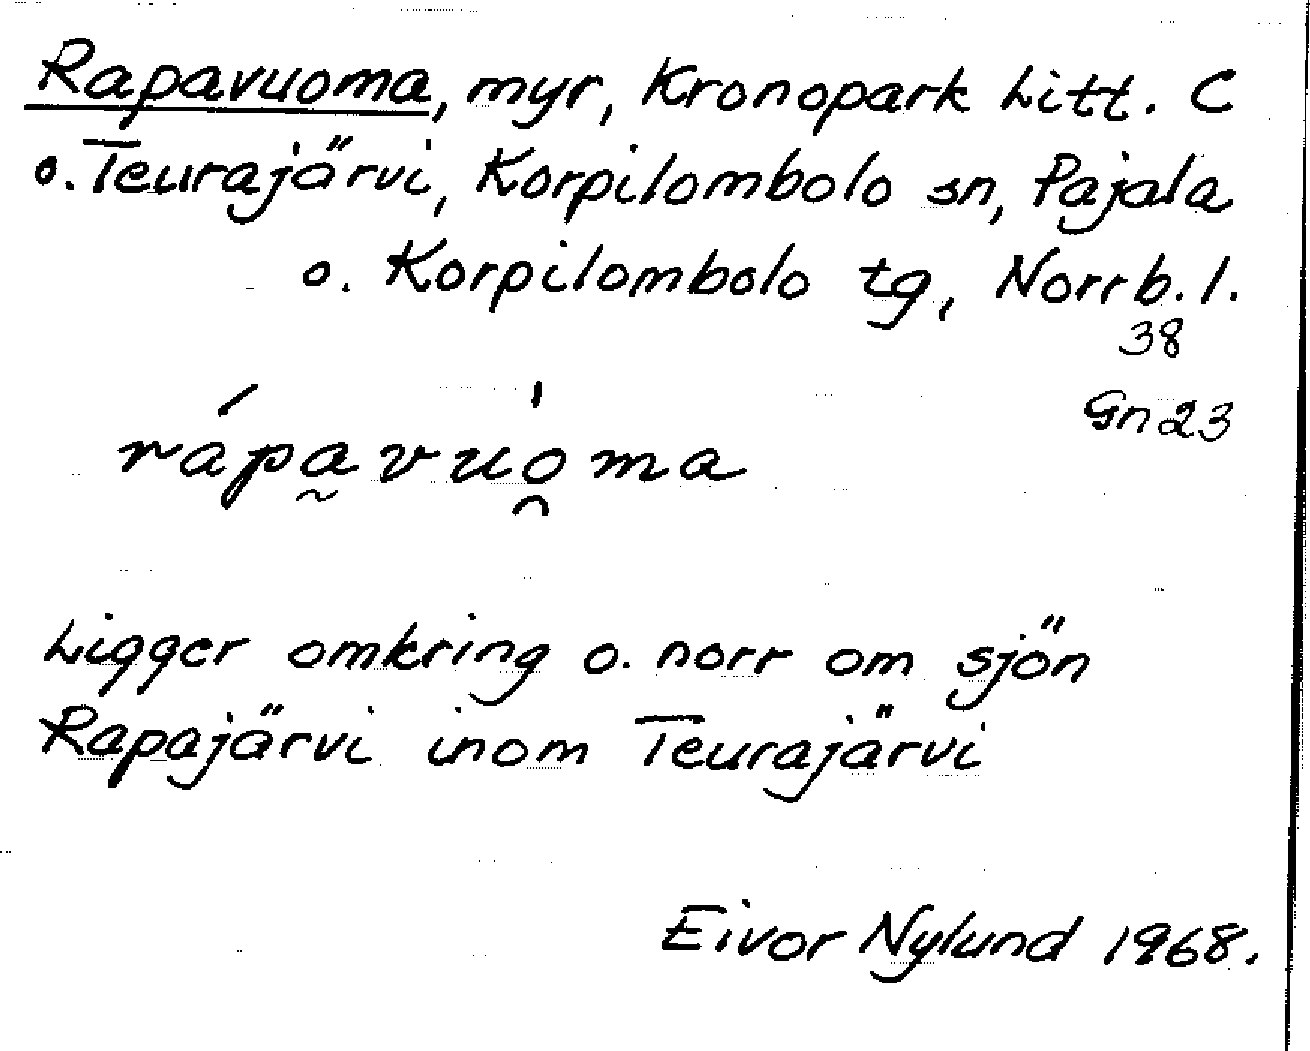 Rapavuoma, myr, Kronopark Litt. C
o. Teurajärvi, Korpilombolo sn, Pajala
o. Korpilombolo tg, Norrb. l.
38
Gn 23
rápa̰vuo̯̍ma
Ligger omkring o. norr om sjön
Rapajärvi inom Teurajärvi
Eivor Nylund 1968.